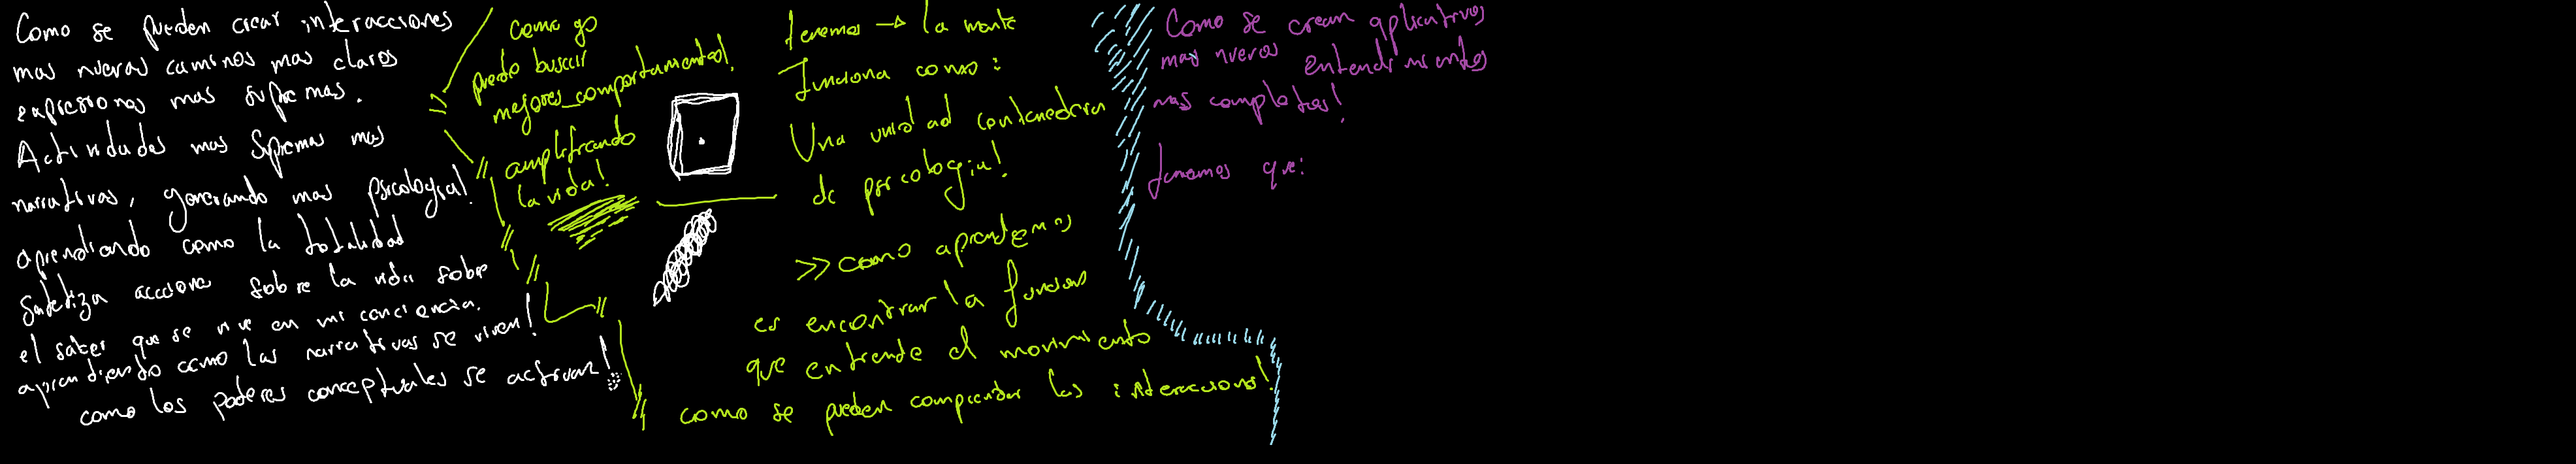 Como se pueden crear interacciones
mas nuevas caminos mas claros
expresiones mas supremas.
Actividades mas supremas mas
narrativas, generando mas psicologia!
aprendiendo como la totalidad
sintetiza acciona sobre la vida sobre
el saber que se vive en mi conciencia.
aprendiendo como las narrativas se viven!
como los poderes conceptuales se activan!
como yo
puedo buscar
mejores_comportamental!
amplificando
la vida!
tenemos → la mente
funciona como:
Una unidad contenedora
de psicologia!
>> como aprendemos
es encontrar la funcion
que entiende el movimiento
como se pueden comprender las interacciones!
Como se crean aplicativos
mas nuevos entendimientos
mas completos!
Tenemos que: